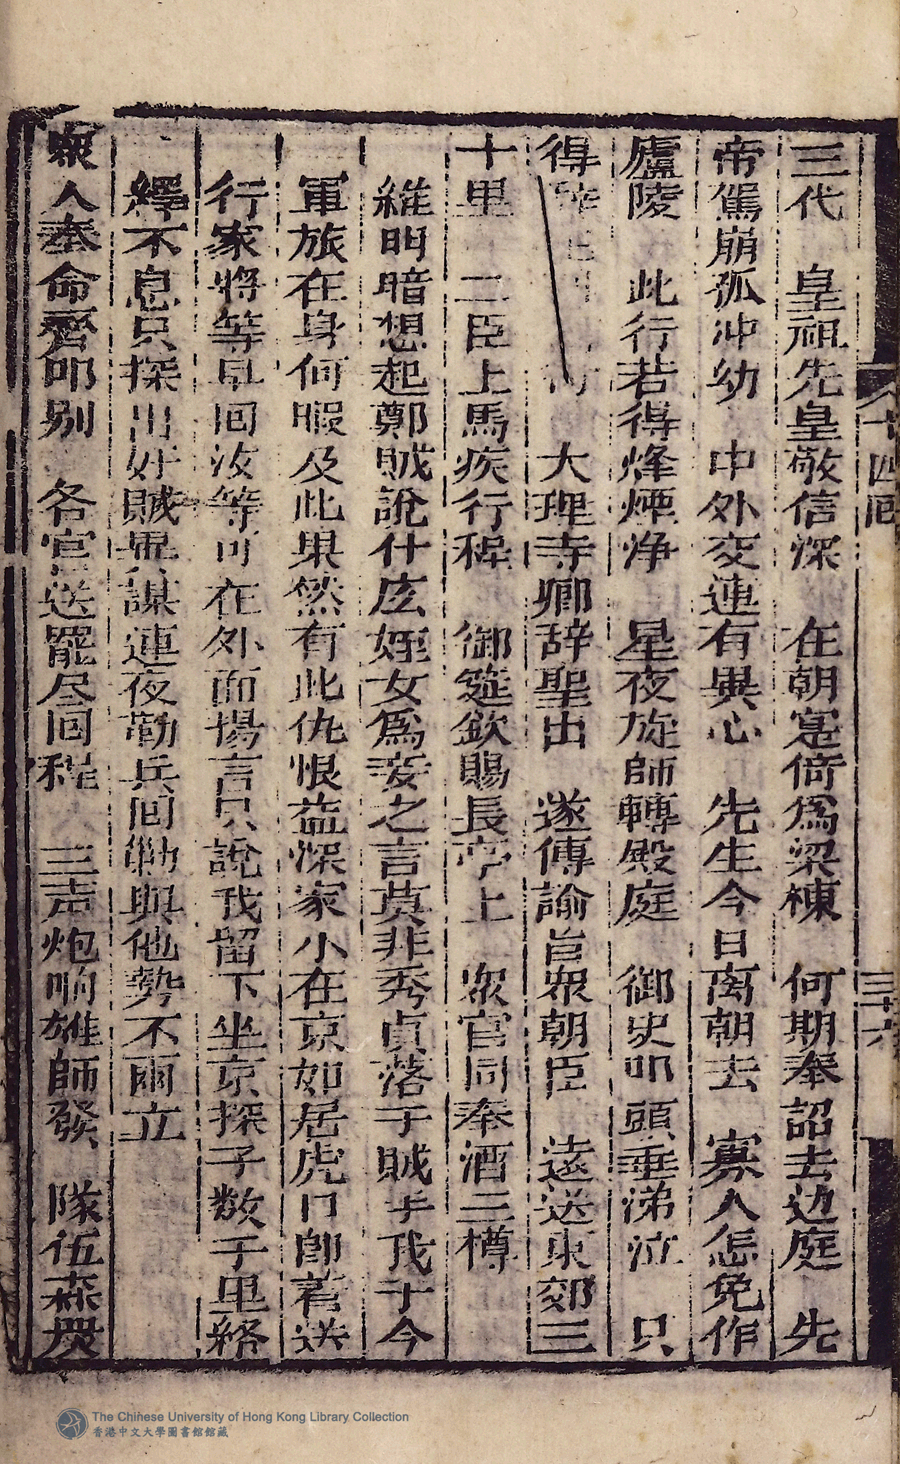 三代　皇祖先皇敬信深　在朝寔倚為梁棟　何期奉詔去边庭　先
帝駕崩孤冲幼　中外交連有異心　先生今日离朝去　寡人怎免作
廬陵　此行若得烽煙浄　星夜旋師轉殿庭　御史叩頭垂涕泣　只
得　大理寺卿辞聖出　遂傳諭旨衆朝臣　遠送東郊三
十里　二臣上馬疾行程　御筵欽賜長亭上　衆官同奉酒三樽
維明暗想起鄭賊說什庅姪女為妾之言莫非秀貞落于賊手我于今
軍旅在身何暇及此果然有此仇恨益深家小在京如居虎口即着送
行家將等早囬汝等可在外面揚言只說我留下坐京探子数千里絡
繹不息只探出奸賊異謀連夜勒兵囬勦與他勢不兩立
衆人奉命齊叩别　各官送罷尽囬程　三声炮响雄師發　隊伍森嚴
十四囬
三十六
The Chinese University of Hong Kong Library Collection
香港中文大學圖書館館藏